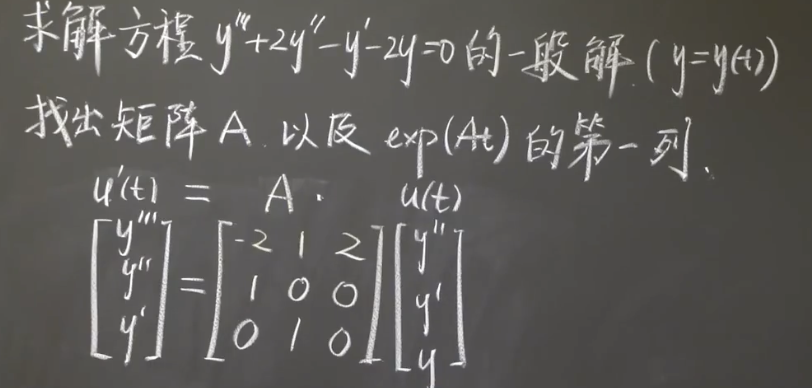 求解方程 y'''+2y''-y'-2y=0 的一般解.(y=y(t))
找出矩阵 A. 以及 exp(At) 的第一列.
u'(t) = A · u(t)
[y''' y'' y'] = [-2 1 2 1 0 0 0 1 0] [y'' y' y]